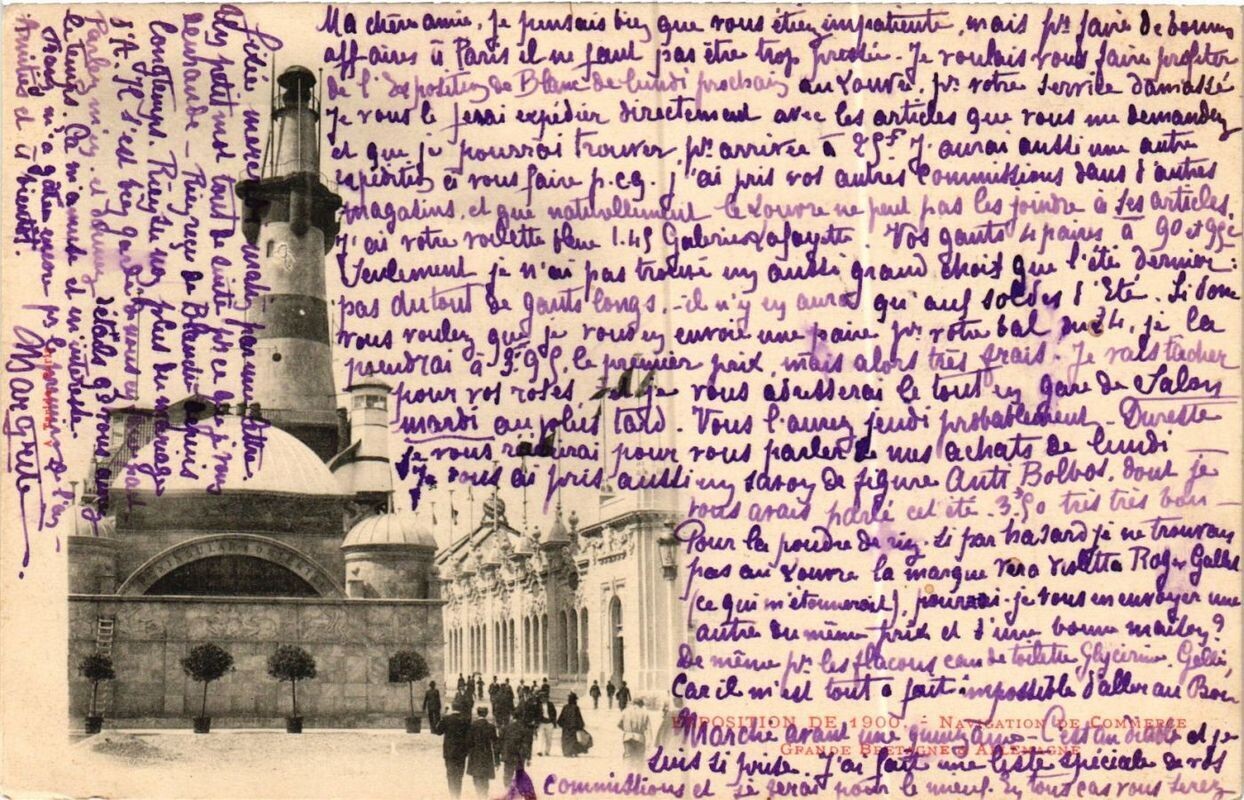 Ma chère amie, je pensais bien que vous étiez impatiente, mais pr faire de bonnes
affaires à Paris il ne faut pas être trop pressée. Je voulais vous faire profiter
de l'Exposition de Blanc de lundi prochain au Louvre, pr votre service damassé
Je vous le ferai expédier directement avec les articles que vous me demandez
et que je pourrai trouver, pr arriver à 25f J'aurai aussi une autre
expédition à vous faire p.c.q. j'ai pris vos autres commissions dans d'autres
magasins, et que naturellement le Louvre ne peut pas les joindre à ses articles.
J'ai votre voilette bleue 1.45 Galeries Lafayette. Vos gants 4 paires à 90 et 95c
Seulement je n'ai pas trouvé un aussi grand choix que l'été dernier:
pas du tout de gants longs. - il n'y en aura qu'aux soldes d'Eté. Si donc
vous voulez que je vous en envoie une paire pr votre bal du 24, je la
prendrai à 3f95, le premier prix, mais alors très frais. Je vais tâcher
pour vos roses et je vous adresserai le tout en gare de Salon
mardi au plus tard. Vous l'aurez jeudi probablement.
Je vous pour vous parler de mes achats de lundi
Je vous ai pris aussi un savon de figure Anti Bolbos, dont je
vous avais parlé cet été. 3f50 très très bon -
Pour la poudre de riz. si par hasard je ne trouvais
pas au Louvre la marque Vera Violetta Roger Gallet
(ce qui m'étonnerait), pourrai-je vous en envoyer une
autre du même prix et d'une bonne maison?
De même pr les flacons eau de toilette Glycérine. Gellé,
Car il m'est tout à fait impossible d'aller au Bon
EXPOSITION DE 1900. - NAVIGATION DE COMMERCE
Marché avant une quinzaine - C'est au diable et je
GRANDE BRETAGNE & ALLEMAGNE
suis si prise. J'ai fait une liste spéciale de vos
commissions et je ferai pour le mieux. En tout cas vous serez
fixée mardi par une lettre.
Un petit mot tout de suite pr ce que je vous
demande - Rien reçu de Blanche depuis
longtemps. Rien su non plus du mariage
d'A. M. s'est bien gardé
Parlez m'en et donnez détails qd vous aurez
le temps. Ça m'amuse et m'intéresse
Amitiés et à bientôt.
Marguerite